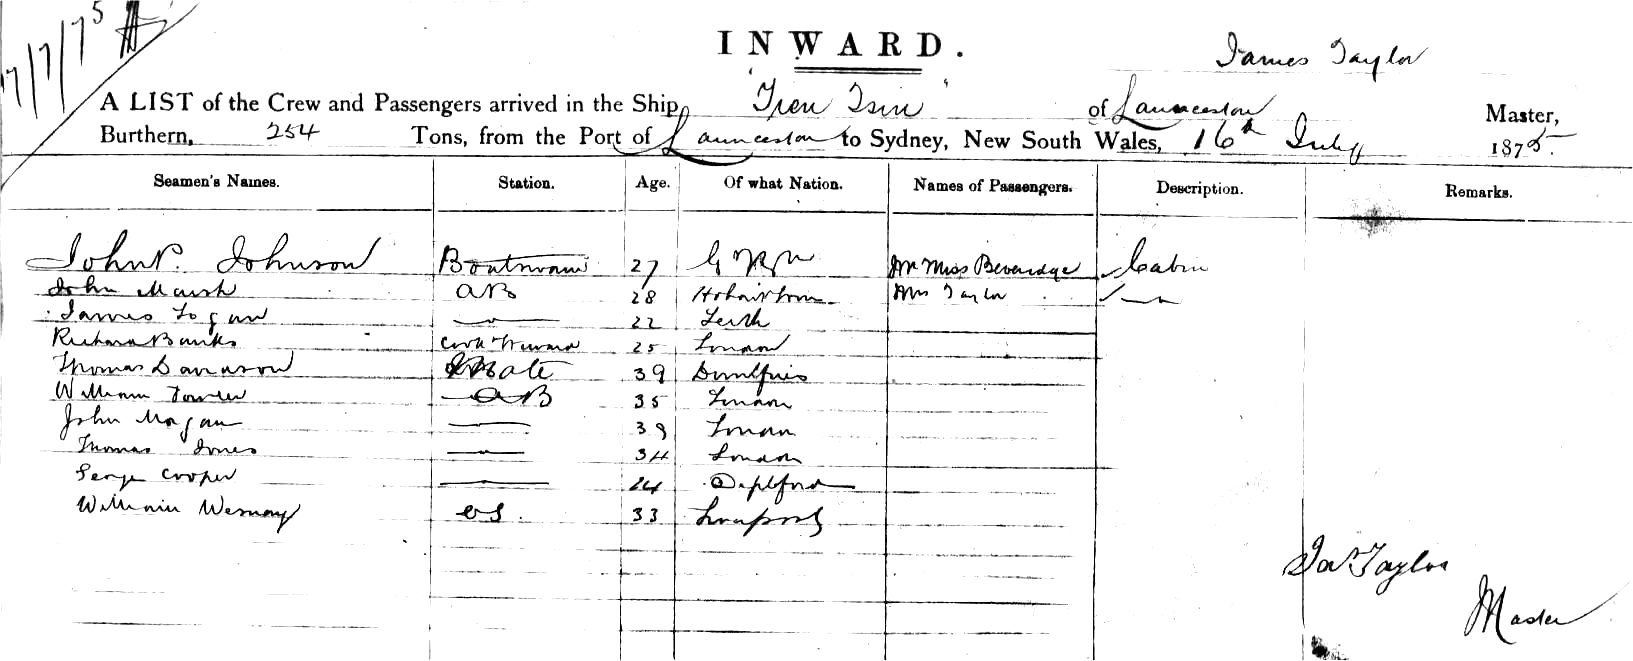 17/7/75
INWARD.
James Taylor
A LIST of the Crew and Passengers arrived in the Ship, "Tien Tsin" of Launceston Master,
Burthern, 254 Tons, from the Port of Launceston to Sydney, New South Wales, 16th July 1875.
Seamen's Names. Station. Age. Of what Nation. Names of Passengers. Description. Remarks.
John P. Johnson Boatswain 27 Miss Beveridge Cabin
John Marsh AB 28 Hobart Town Mrs Taylor
James Logan 22 Leith
Richard Banks Cook & Steward 25 London
Thomas Davidson Mate 39 Dumfries
William Fowler AB 35 London
John Hogan 39 London
Thomas Jones 34 London
George Cooper 24 Deptford
William OS. 33 Liverpool
Jas Taylor
Master